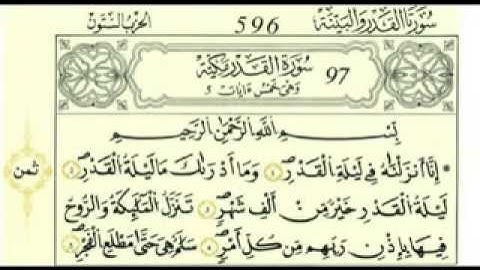 سورتا القدر والبينة 596 الحزب الستون
سورة القدر مكية 97
وهي خمس ءايات 5
بسم الله الرحمن الرحيم
إنا أنزلنه في ليلة القدر وما أدريك ما ليلة القدر
ثمن
ليلة القدر خير من ألف شهر تنزل المليكة والروح
فيها بإذن ربهم من كل أمر سلم هي حتى مطلع الفجر